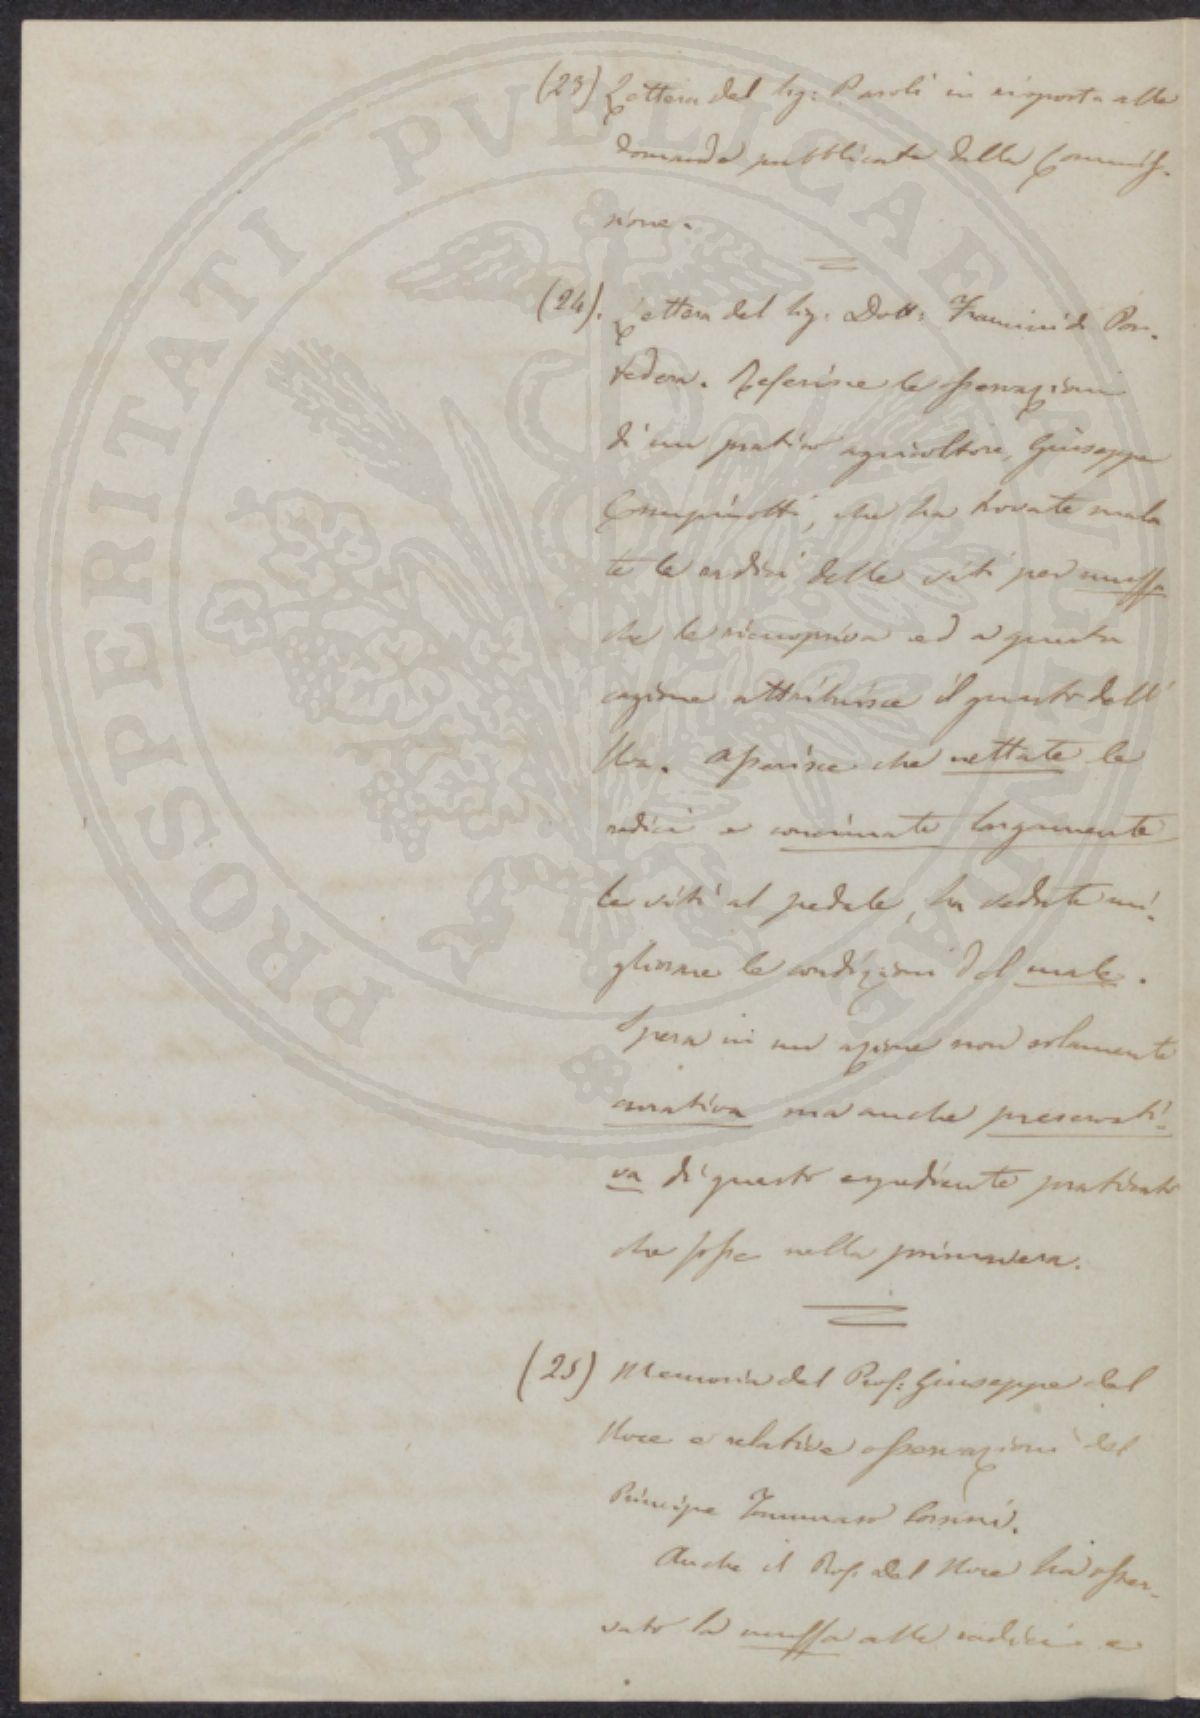 (23) Lettera del Sig: Paroli in risposta alle
domande pubblicate dalla Commis-
sione.
(24). Lettera del Sig. Dott: di Pon-
tedera. Referisce le osservazioni
di un pratico agricoltore, Giuseppe
che ha trovate mala
te le radici delle viti per muffa
che le ricuopriva ed a questa
cagione attribuisce il guasto dell'
Uva. Asserisce che nettate le
radici e concimate largamente
le viti al pedale, ha vedute mi-
gliorare le condizioni del male.
Spera in un azione non solamente
curativa ma anche preservati-
va di questo espediente praticato
che fosse nella primavera.
(25) Memoria del Prof: Giuseppe del
Noce e relative osservazioni del
Principe Tommaso Corsini.
Anche il Prof. del Noce ha osser-
vato la muffa alle radici e
PROSPERITATI PVBLICAE AVGENDAE